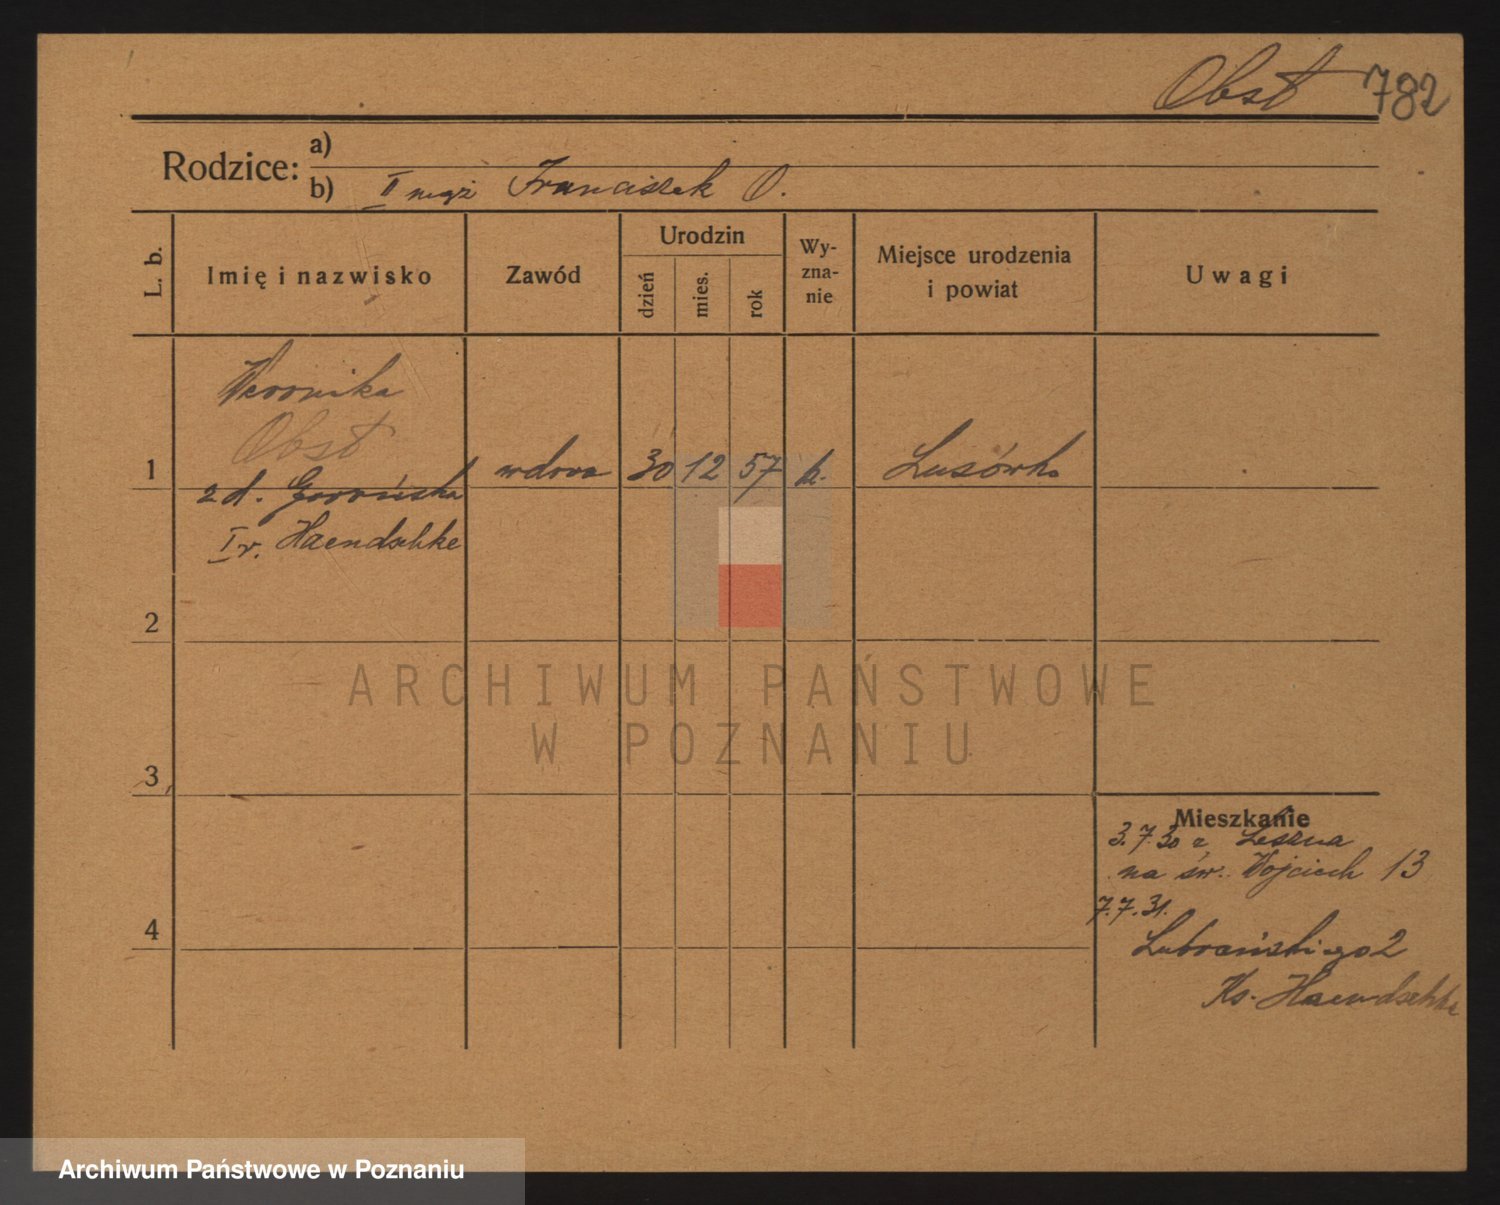 Obst 782
Rodzice:
a)
b) II mąż Franciszek O.
L. b.
Imię i nazwisko
Zawód
Urodzin
dzień
mies.
rok
Wy-
zna-
nie
Miejsce urodzenia
i powiat
Uwagi
Weronika
Obst
1 wdowa 30 12 57 k. Lusówko
z d. Gorońska
I v. Haendschke
2
3
4
Mieszkanie
3.7.30 z Leszna
na św. Wojciech 13
7.7.31.
Lubrańskiego 2
Ks. Haendschke
ARCHIWUM PAŃSTWOWE
W POZNANIU
Archiwum Państwowe w Poznaniu